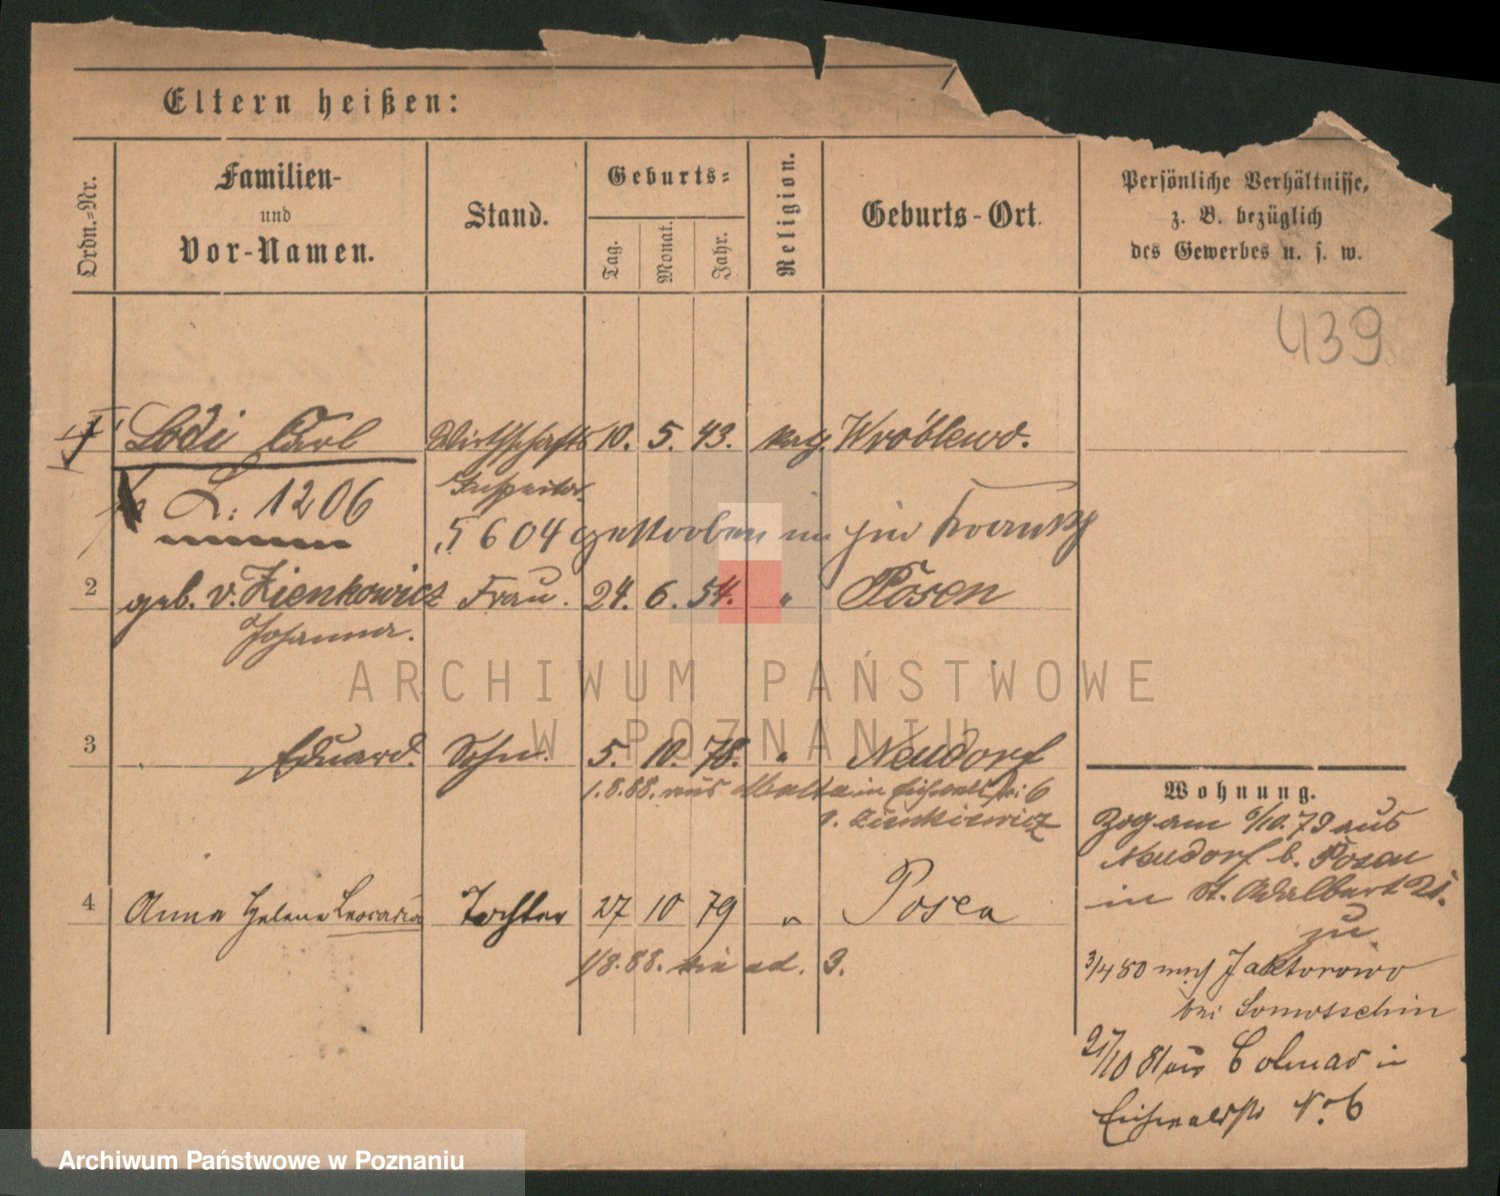 Eltern heißen:
Ordn.-Nr.
Familien-
und
Vor-Namen.
Stand.
Geburts-
Tag.
Monat.
Jahr.
Religion.
Geburts-Ort.
Persönliche Verhältnisse,
z. B. bezüglich
des Gewerbes u. s. w.
439
Lodi Carl Wirthschafts 10. 5. 43. kath. Wróblewo.
Inspector.
L: 1206
5604 gestorben in
2 geb. v. Zienkowicz Frau. 24. 6. 54. " Posen
Johanna.
ARCHIWUM PAŃSTWOWE
W POZNANIU
3 Eduard. Sohn. 5. 10. 78. " Neudorf
1.8.88. aus Malta in Eichwaldstr. 6
b. Zienkiewicz
4 Anna Helene Leocadia Tochter 27 10 79 " Posen
1/8.88. wie ad. 3.
Wohnung.
Zog am 6/10. 79 aus
Neudorf b. Posen
in St. Adalbert 21.
zu
3/4 80 nach Jaktorowo
bei Samotschin
21/10 81 aus Colmar in
Eichwaldstr No. 6
Archiwum Państwowe w Poznaniu